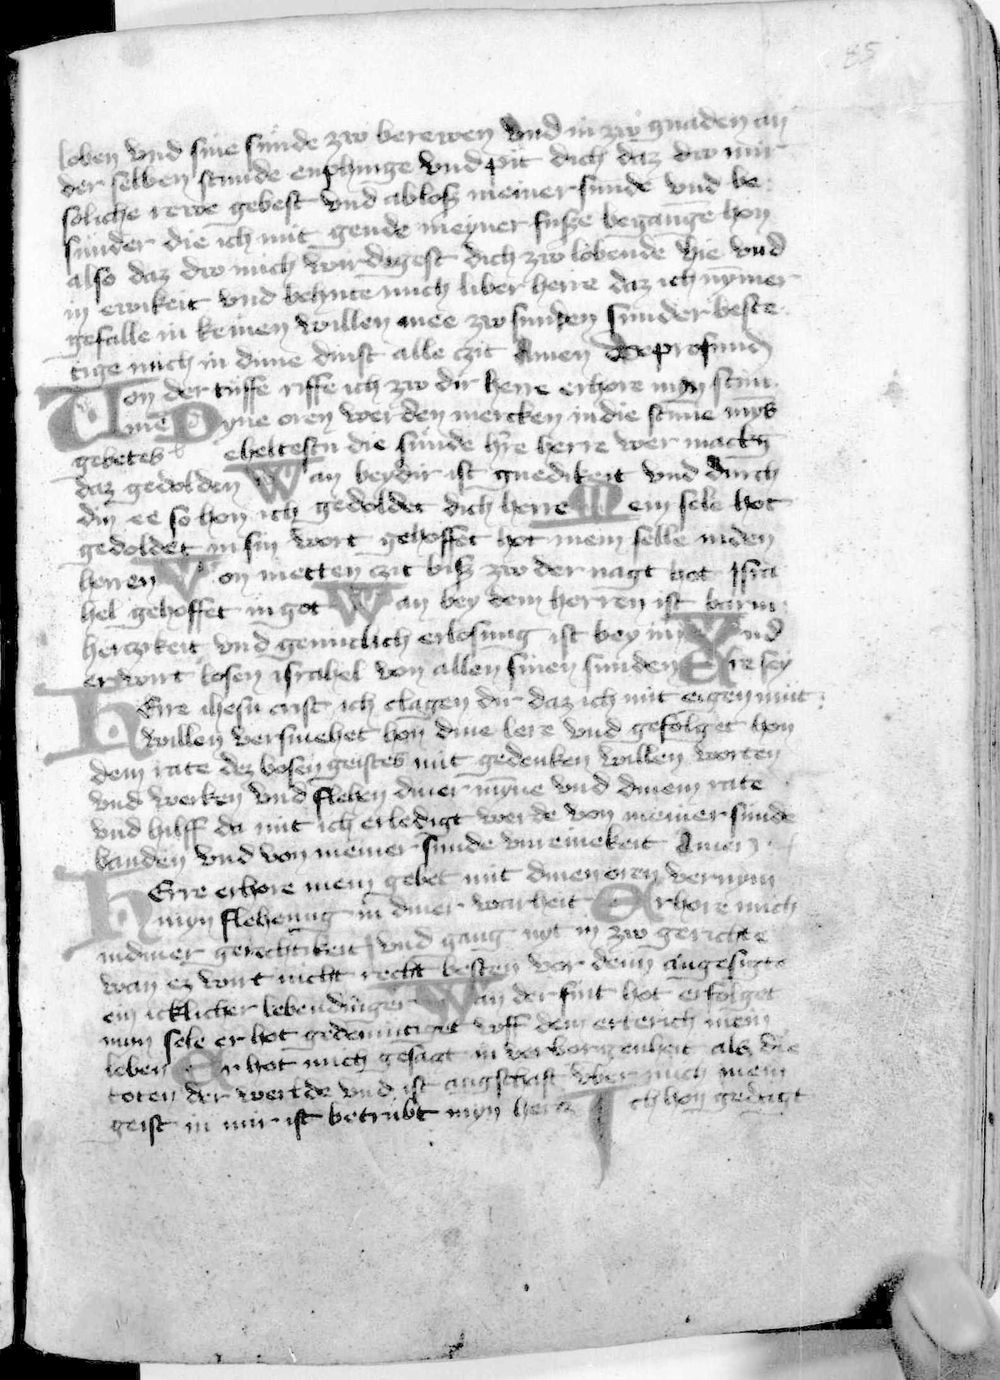 85
leben vnd sine sunde zw berewen vnd in zw gnaden an
der selben stunde enphinge vnd pit dich daz dw mir
soliche rewe gebest vnd ablosz meiner sunde vnd be
sunder die ich mit gende meyner fusze begangen hon
also daz dw mich wirdigest dich zw lobende hie vnd
in ewikeit vnd behute mich liber herre daz ich nymer
gefalle in keinen willen mee zw sunden sunder beste
tige mich in dinne dinst alle czit Amen De profund
Von der tuffe riffe ich zw dir herre erhore myn stim
me Dyne oren werden mercken in die stime myns
gebetes beheltestu die sunde hre herre wer mackh
daz gedolden Wan bey dir ist gnedikeit vnd durch
din ee so hon ich gedoldet dich herre Mein sele hot
gedoldet in sin wort gehoffet hot mein selle in den
herren Von metten czit bisz zw der nagt hot Isra
hel gehoffet in got Wan bey dem herren ist barm
herczikeit vnd genuclich erlosung ist bey im Vnd
er wirt losen israhel von allen sinen sunden Ere sey
HErre ihesu crist ich clagen dir daz ich mit eigen mut
willen versmehet hon dine lere vnd gefolget hon
dem rate dez bosen geistes mit gedenken willen worten
vnd werken vnd flehen diner mynne vnd dinem rate
vnd hilff da mit ich erledigt werde von meiner sunde
banden vnd von meiner sunde vnreinekeit Amen
HErre erhore mein gebet mit dinen oren vernym
myn flehenng in diner warheit Erhore mich
in diner gerechtikeit vnd gang nyt in zw gerichte
wan ez wirt nicht recht besten vor denn angesigte
ein icklicher lebendinger Wan der fint hot erfolget
myn sele er hot gedemutiget vff dem erterich mein
leben Er hot mich gesagt in verborgenheit alz die
toten der werlde vnd ist angschaft vber mich mein
geist in mir ist betrubt myn hercz Ich hon gedagt